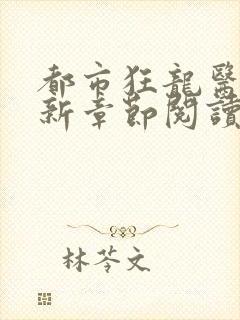 都市狂龍醫
新章節閱讀
林苓文